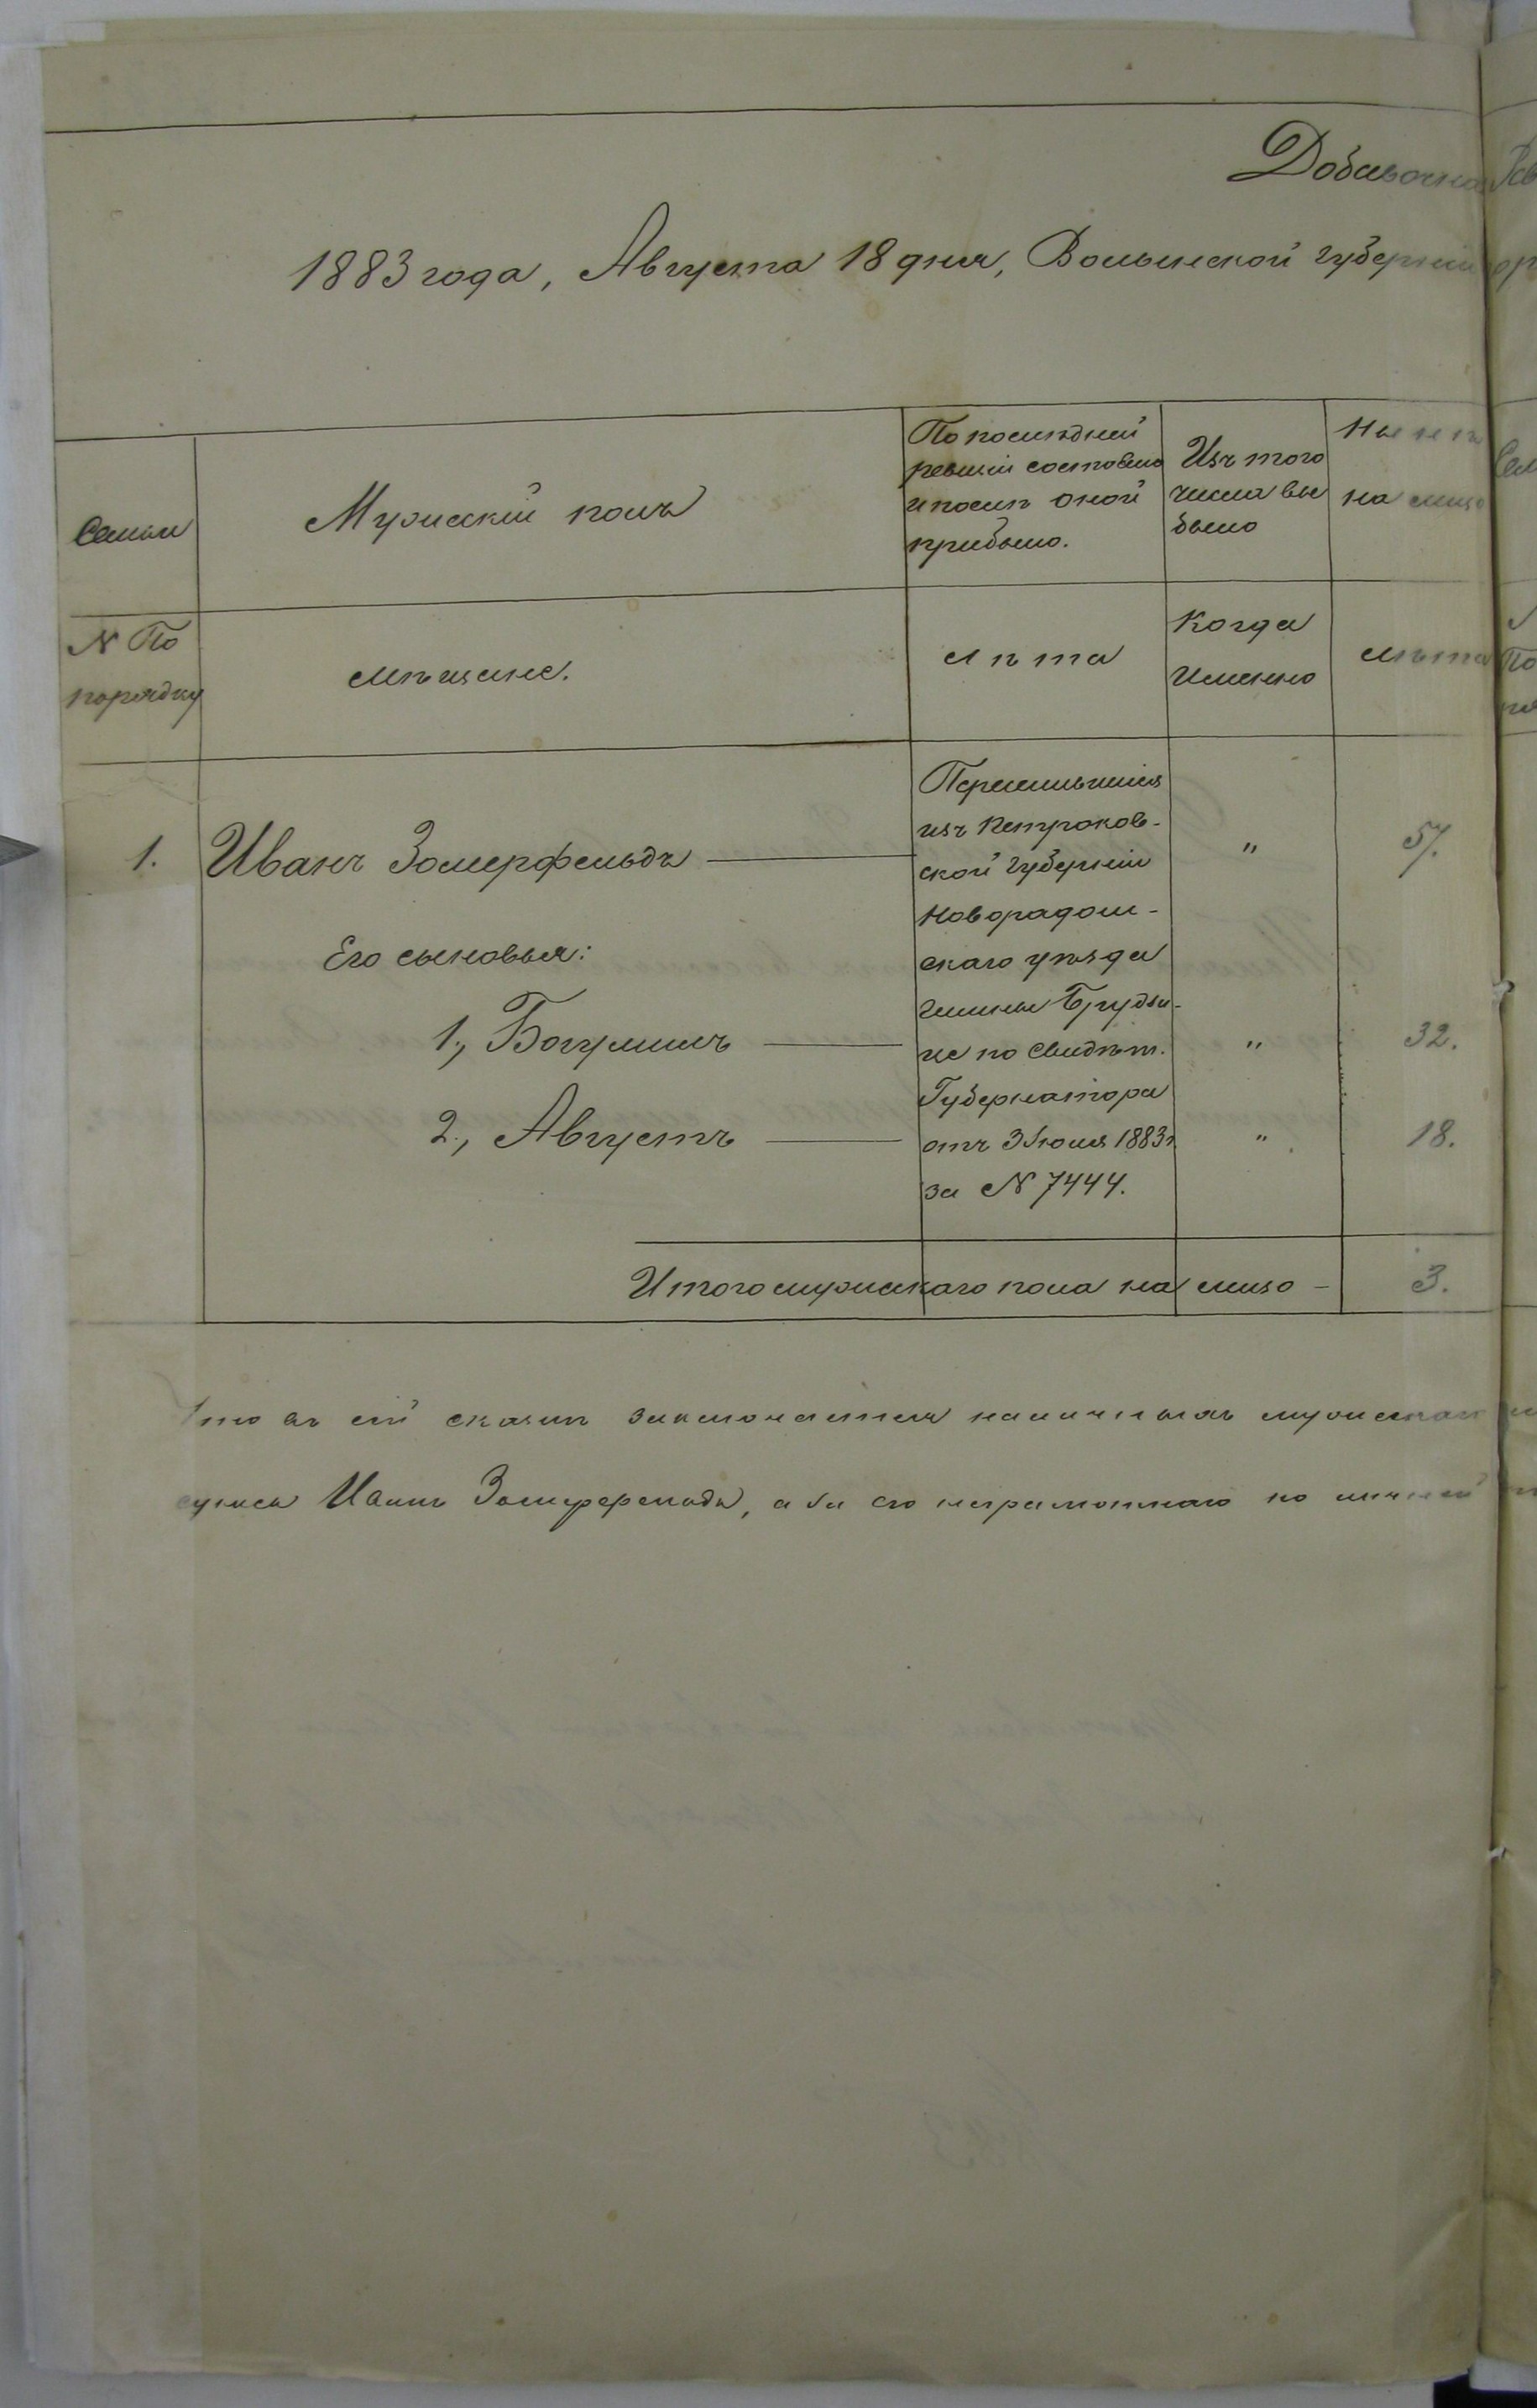 Добавочная Рев
1883 года, Августа 18 дня, Волынской губерніи
Семьи
Мужескій полъ
По послѣдней
ревизіи состояло
и послѣ оной
прибыло.
Изъ того
числа вы
было
Нынѣ
на лицо
№ По
порядку
Мѣщане.
Лѣта
Когда
Именно
Лѣта
1. Иванъ Зомерфельдъ — " 57.
Переселившійся
изъ Петроков-
ской Губерніи
Новорадом-
скаго уѣзда
гмины Брудзи-
це по свидѣт.
Губернатора
отъ 3 Іюня 1883 г.
за № 7444.
Его сыновья:
1., Богумилъ — " 32.
2., Августъ — " 18.
Итого мужескаго пола на лицо - 3.
Что въ сей сказкѣ заключается наличныхъ мужескаго
Иванъ Зомерфельдъ, а за его неграмотнаго по личной